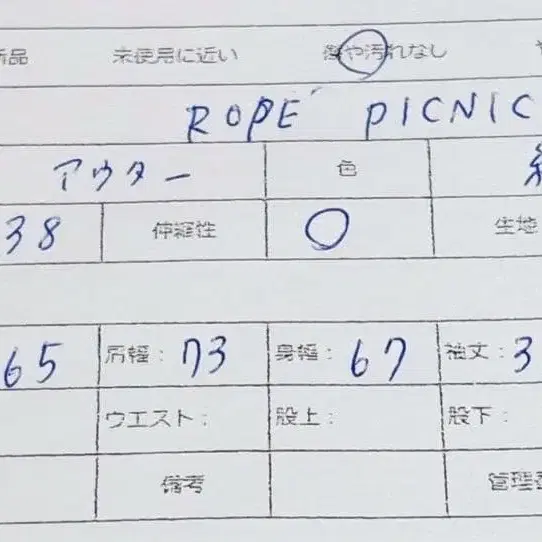 新品 未使用に近い 傷や汚れなし
ROPE' PICNIC
アウター 色
38 伸縮性 ○ 生地
65 肩幅: 73 身幅: 67 袖丈: 3
ウエスト: 股上: 股下:
備考 管理番